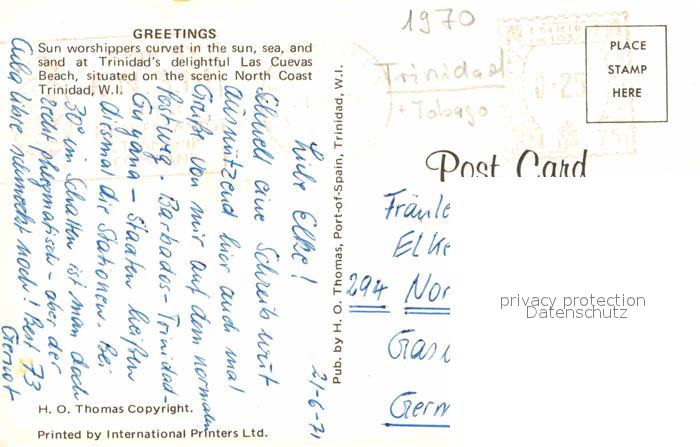 GREETINGS
Sun worshippers curvet in the sun, sea, and
sand at Trinidad's delightful Las Cuevas
Beach, situated on the scenic North Coast
Trinidad, W.I.
21-6-71
Liebe Elke!
Schnell eine Schreibwut
ausnützend hier auch mal
Grüße von mir auf dem normalen
Postweg. Barbados-Trinidad-
Guyana-Staaten heißen
diesmal die Stationen. Bei
30° im Schatten ist man doch
recht phlegmatisch - aber der
Cuba libre schmeckt noch! Best 73
Gernot
H. O. Thomas Copyright.
Printed by International Printers Ltd.
Pub. by H. O. Thomas, Port-of-Spain, Trinidad, W.I.
1970
Trinidad
+ Tobago
0.25
PLACE
STAMP
HERE
Post Card
Fräule
Elke
294 Nor
Gas
Germ
privacy protection
Datenschutz